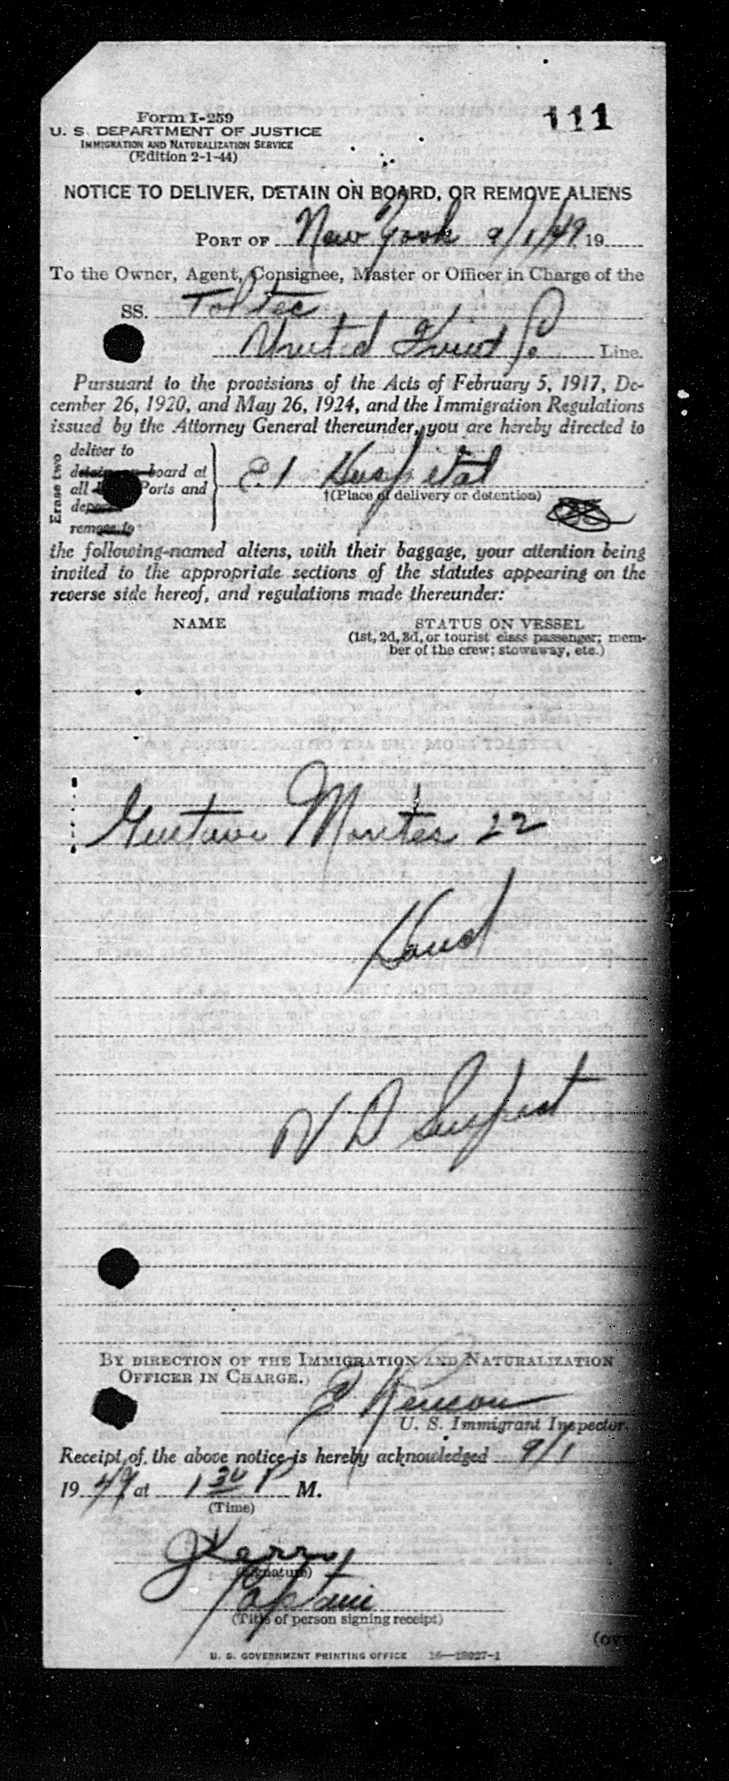 111
Form I-259
U. S. DEPARTMENT OF JUSTICE
IMMIGRATION AND NATURALIZATION SERVICE
(Edition 2-1-44)
NOTICE TO DELIVER, DETAIN ON BOARD, OR REMOVE ALIENS
PORT OF New York 9/1/49, 19
To the Owner, Agent, Consignee, Master or Officer in Charge of the
SS. Toltec
United Fruit Co Line.
Pursuant to the provisions of the Acts of February 5, 1917, De-
cember 26, 1920, and May 26, 1924, and the Immigration Regulations
issued by the Attorney General thereunder, you are hereby directed to
Erase two
deliver to
detain on board at
all Ports and
remove to
E I Hospital
†(Place of delivery or detention)
the following-named aliens, with their baggage, your attention being
invited to the appropriate sections of the statutes appearing on the
reverse side hereof, and regulations made thereunder:
NAME
STATUS ON VESSEL
(1st, 2d, 3d, or tourist class passenger; mem-
ber of the crew; stowaway, etc.)
Gustavo Montes 22
Hond
V D Suspect
BY DIRECTION OF THE IMMIGRATION AND NATURALIZATION
OFFICER IN CHARGE.
U. S. Immigrant Inspector.
Receipt of the above notice is hereby acknowledged 9/1
1949 at 1 30 P M.
(Time)
(Signature)
Captain
(Title of person signing receipt)
U. S. GOVERNMENT PRINTING OFFICE 16—18027-1